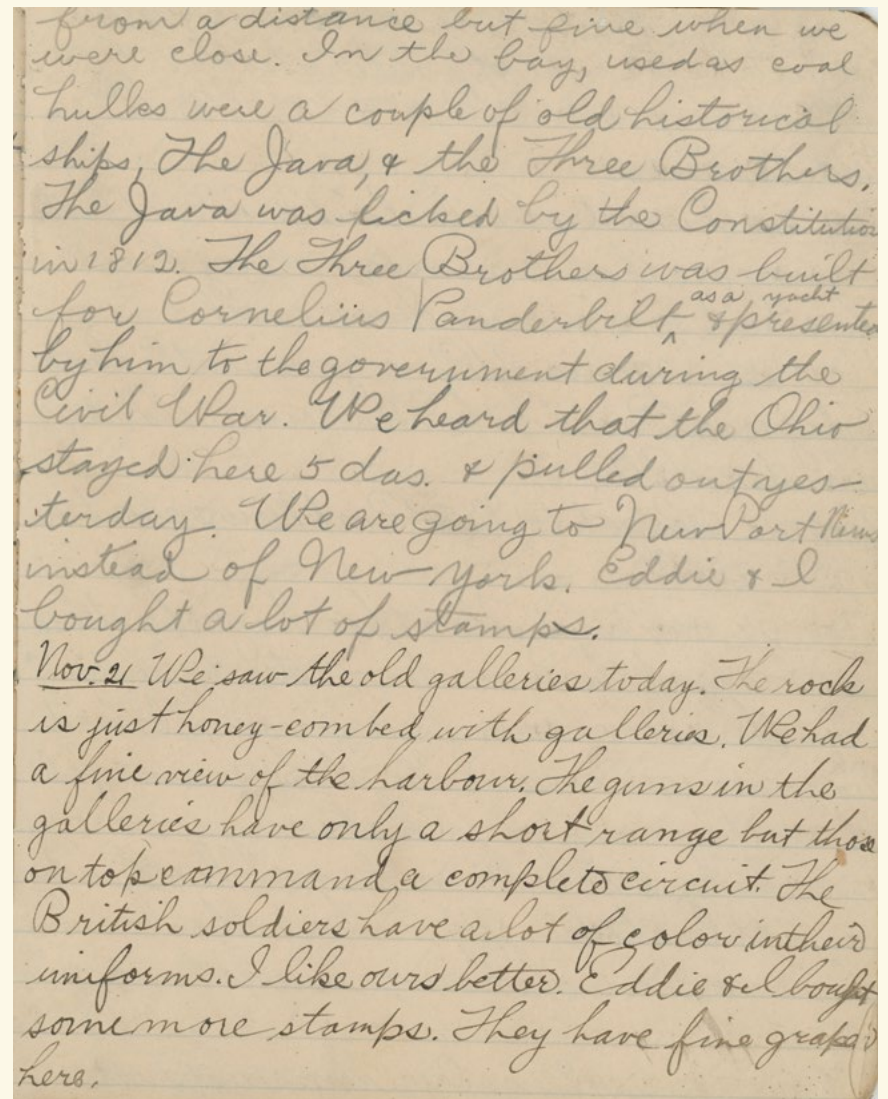 from a distance but fine when we
were close. In the bay, used as coal
hulks were a couple of old historical
ships, The Java, & the Three Brothers.
The Java was licked by the Constitution
in 1812. The Three Brothers was built
for Cornelius Vanderbilt ^ as a yacht & presented
by him to the government during the
Civil War. We heard that the Ohio
stayed here 5 das. & pulled out yes-
terday. We are going to New Port News
instead of New York. Eddie & I
bought a lot of stamps.
Nov. 21 We saw the old galleries today. The rock
is just honey-combed with galleries. We had
a fine view of the harbour. The guns in the
galleries have only a short range but those
on top command a complete circuit. The
British soldiers have a lot of color in their
uniforms. I like ours better. Eddie & I bought
some more stamps. They have fine grapes
here.